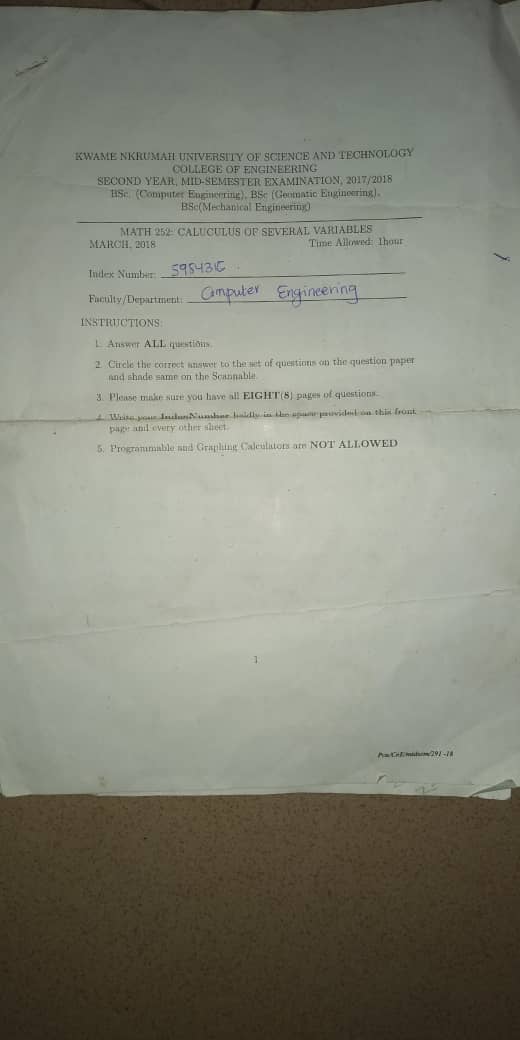 KWAME NKRUMAH UNIVERSITY OF SCIENCE AND TECHNOLOGY
COLLEGE OF ENGINEERING
SECOND YEAR, MID-SEMESTER EXAMINATION, 2017/2018
BSc. (Computer Engineering), BSc (Geomatic Engineering),
BSc(Mechanical Engineering)
MATH 252: CALUCULUS OF SEVERAL VARIABLES
MARCH, 2018 Time Allowed: 1hour
Index Number: 5954315
Faculty/Department: Computer Engineering
INSTRUCTIONS:
1. Answer ALL questions.
2. Circle the correct answer to the set of questions on the question paper
and shade same on the Scannable.
3. Please make sure you have all EIGHT(8) pages of questions.
4. Write your IndexNumber boldly in the space provided on this front
page and every other sheet.
5. Programmable and Graphing Calculators are NOT ALLOWED
1